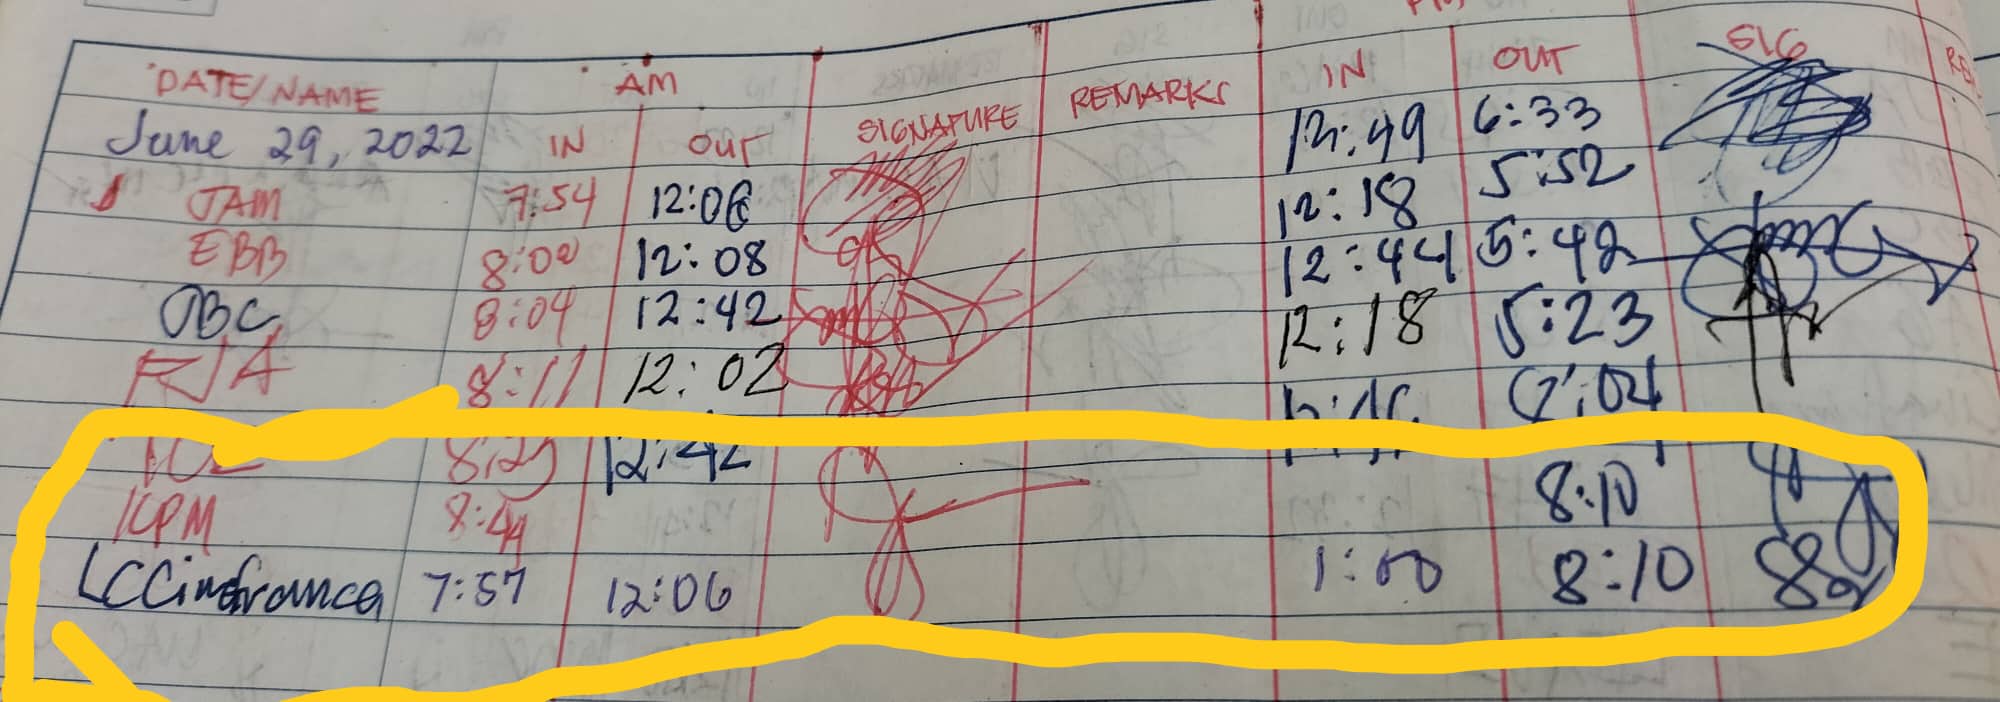 DATE/NAME AM SIGNATURE REMARKS IN OUT SIG
June 29, 2022 IN OUT 12:49 6:33
JAM 7:54 12:06 12:18 5:52
EBB 8:00 12:08 12:44 5:42
JBC 8:04 12:42 12:18 5:23
RJA 8:11 12:02
12:42
KPM 8:44 8:10
LCCinofranca 7:57 12:06 1:00 8:10